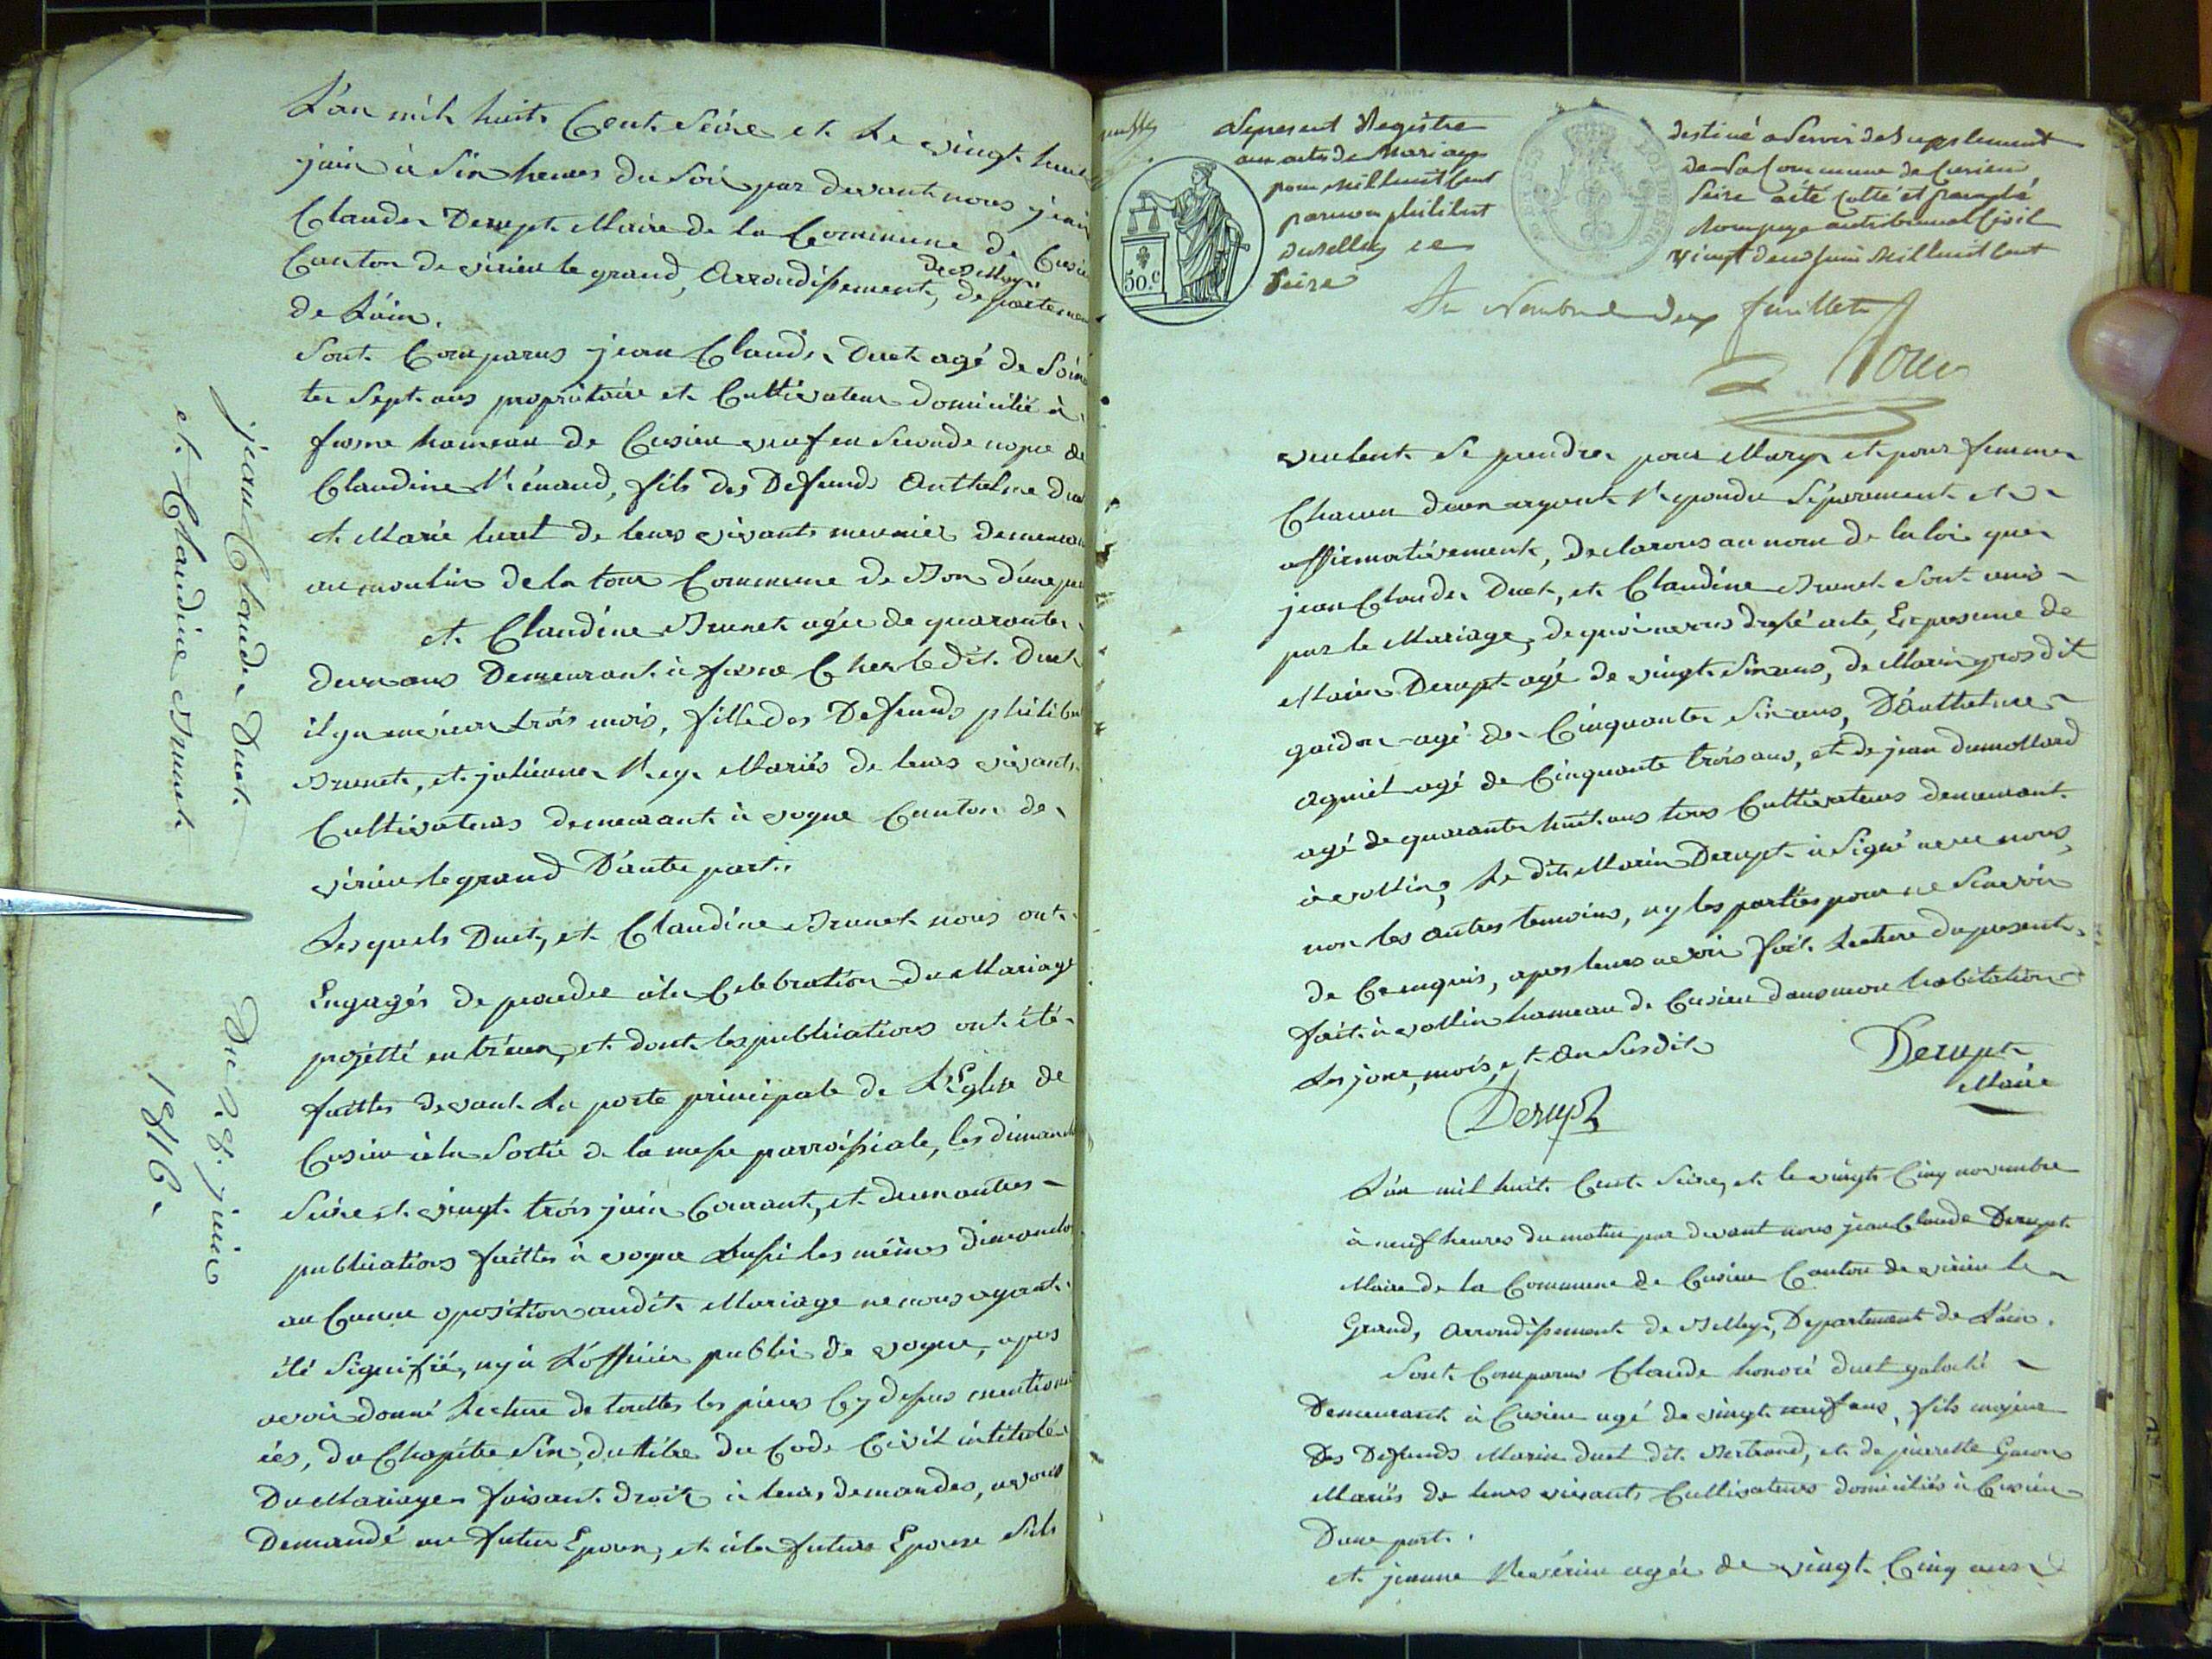 L'an mil huit Cent Seize et le vingt huit
juin à Six heures du Soir par devant nous jean
Claude Derupt Maire de la Commune de Cusieu
Canton de virieu le grand, Arrondissement de Belley, departement
de L'ain.
Sont Comparus jean Claude Duet agé de Soixan
te Sept ans propriétaire et Cultivateur domicilié à
fosne hameau de Cusieu veuf en Seconde nopce de
Claudine Rénaud, fils des Defunds Anthelme Duet
et Marie huet de leurs vivants meunier demeurant
au moulin de la tour Commune de Bon d'une part
et Claudine Brunet agée de quarante
deux ans Demeurant à fosne Chez le dit Duet
il y a environ trois mois, fille des Defunds philibert
Brunet, et julienne Rey Mariés de leurs vivants
Cultivateurs demeurant à vogne Canton de
virieu le grand D'autre part.
Les quels Duet, et Claudine Brunet nous ont
Engagés de proceder à la Celebration du Mariage
projetté entr'eux, et dont les publications ont été
faittes devant La porte principale de L'Eglise de
Cusieu à la Sortie de la messe parroissiale, les dimanches
Seize et vingt trois juin Courant, et deux autres
publications faittes à vogne Aussi les mêmes dimanches
au Cunne oposition audit Mariage ne nous ayant
été Signifiée, ny à L'officier public de vogne, apres
avoir donné Lecture de touttes les pieces Cy dessus mention
ées, du Chapitre Six du titre du Code Civil intitulé
Du Mariage faisant droit à leurs demandes, avons
Demandé au futur Epoux, et à la future Epouse S'ils
jean Claude Duet
et Claudine Brunet
Du 28 juin
1816.
Le present Registre
aux actes de Mariage
pour mil huit Cent
par nous philibert
de Belley ce
Seize
50.c
destiné a Servir de Supplement
de La Commune de Cusieu,
Seize a été Cotté et paraphé
au tribunal Civil
vingt deux juin mil huit Cent
Au Nombre de Deux feuillets
veulent Se prendre pour Mary et pour femme
Chacun deux ayant Repondu Séparement et
affirmativement, Declarons au nom de la loi que
jean Claude Duet, et Claudine Brunet Sont unis
par le Mariage, de quoi avons dressé acte, En presence de
Marin Derupt agé de vingt Six ans, de Marin gros dit
gaidon agé de Cinquante Six ans, D'anthelme
agniel agé de Cinquante trois ans, et de jean dumollard
agé de quarante huit ans tous Cultivateurs demeurant
à vollin, Le dit Marin Derupt à Signé avec nous,
non les autres temoins, ny les parties pour ne Scavoir
de Ce enquis, apres leurs avoir fait Lecture du present
fait à vollin hameau de Cusieu dans mon habitation
Les jour, mois, et An Susdits
Derupt
Derupt
Maire
L'an mil huit Cent Seize, et le vingt Cinq novembre
à neuf heures du matin par devant nous jean Claude Derupt
Maire de la Commune de Cusieu Canton de virieu le
Grand, Arrondissement de Belley, Departement de L'ain.
Sont Comparus Claude honoré duet galoché
Demeurant à Cusieu agé de vingt neuf ans, fils majeur
Des Defunds Marin duet dit Bertrand, et de pierrette Guion
Mariés de leurs vivants Cultivateurs domiciliés à Cusieu
D'une part.
et jeanne Reverieu agée de vingt Cinq ans